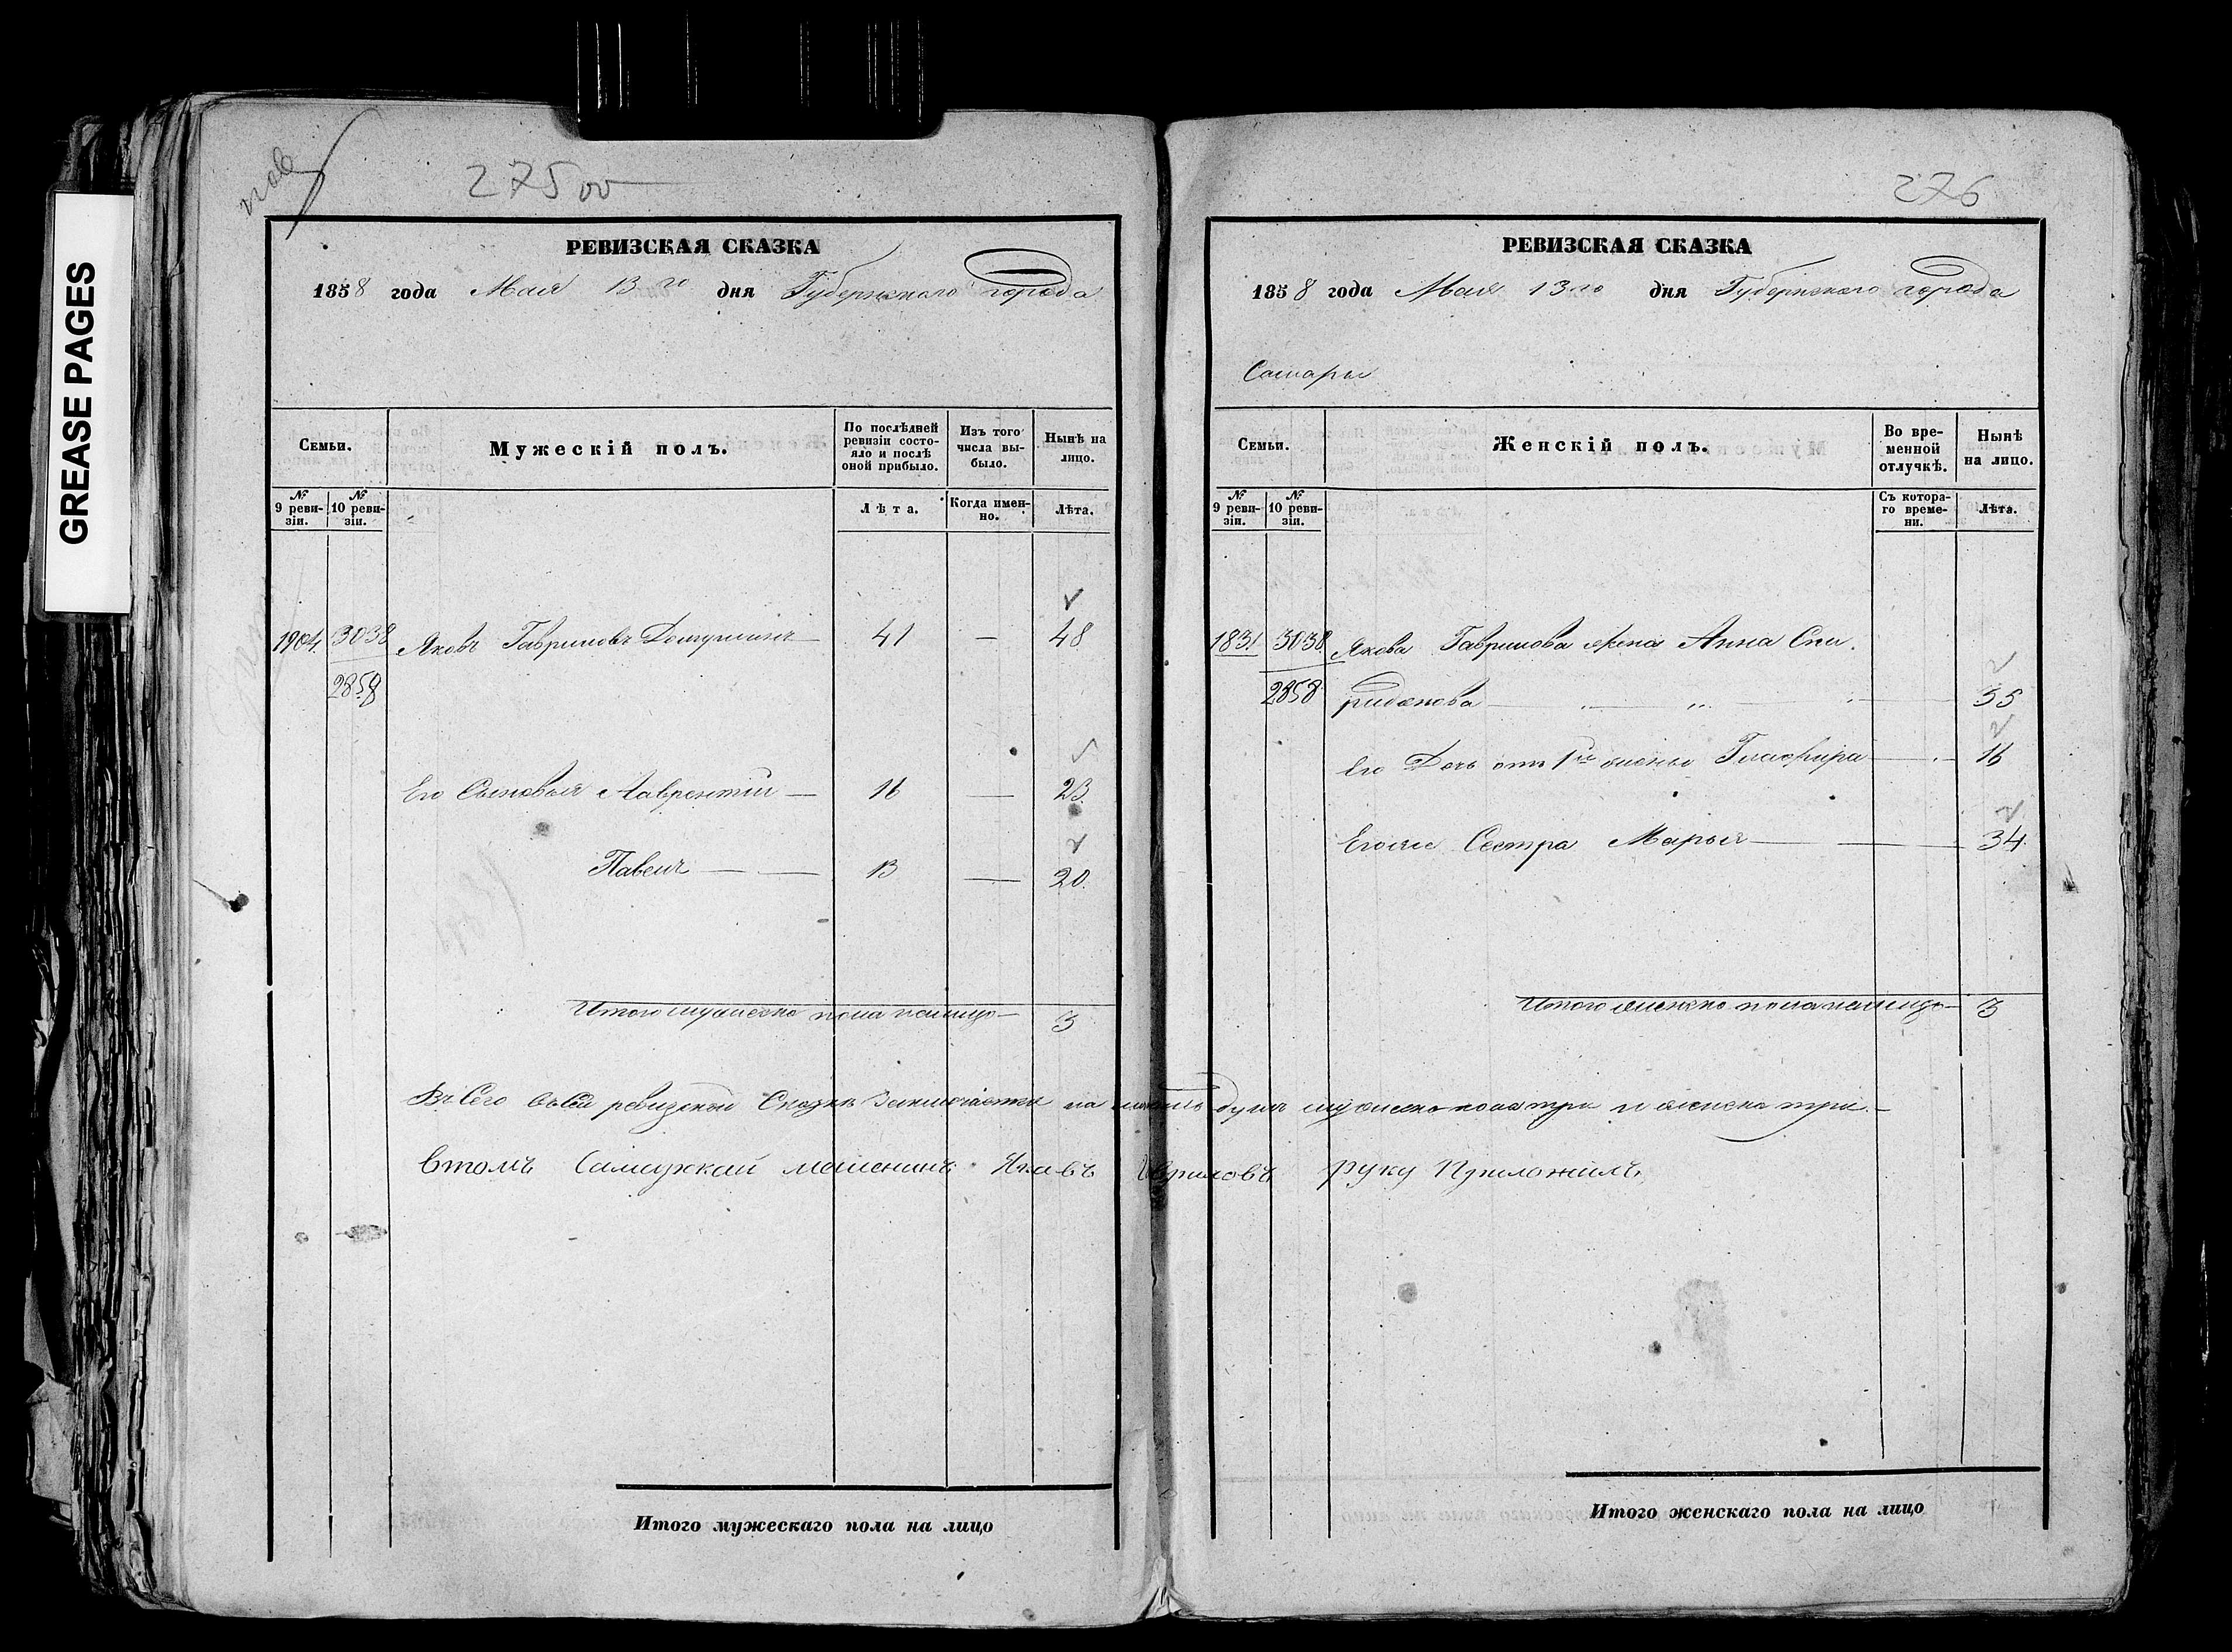 GREASE PAGES
275 об
РЕВИЗСКАЯ СКАЗКА
1858 года Мая 13го дня Губернскаго города
Семьи.
Мужескій полъ.
По послѣдней ревизіи состояло и послѣ оной прибыло.
Изъ того числа выбыло.
Нынѣ на лицо.
№ 9 ревизіи.
№ 10 ревизіи.
Лѣта.
Когда именно.
Лѣта.
1904. 3038 Яковъ Гавриловъ 41 — 48
2858
Его Сыновья Лаврентій — 16 — 23.
Павелъ — — 13 — 20.
Итого мужеска пола налицо — 3
Итого мужескаго пола на лицо
276
РЕВИЗСКАЯ СКАЗКА
1858 года Мая 13го дня Губернскаго города
Самары
Семьи.
Женскій полъ.
Во временной отлучкѣ.
Нынѣ на лицо.
№ 9 ревизіи.
№ 10 ревизіи.
Съ котораго времени.
Лѣта.
1831 3038 Якова Гаврилова жена Анна Спи.
2858 ридонова — 55
Его Дочь отъ 1й жены Глафира — 16
Егоже Сестра Марья — 34.
Итого женска пола налицо — 3
Всего въсей ревизской Сказкѣ Заключается на лицо душъ мужеска пола три и женска три. —
Втомъ Самарскай мешенинъ Яковъ Гавриловъ руку Приложилъ
Итого женскаго пола на лицо